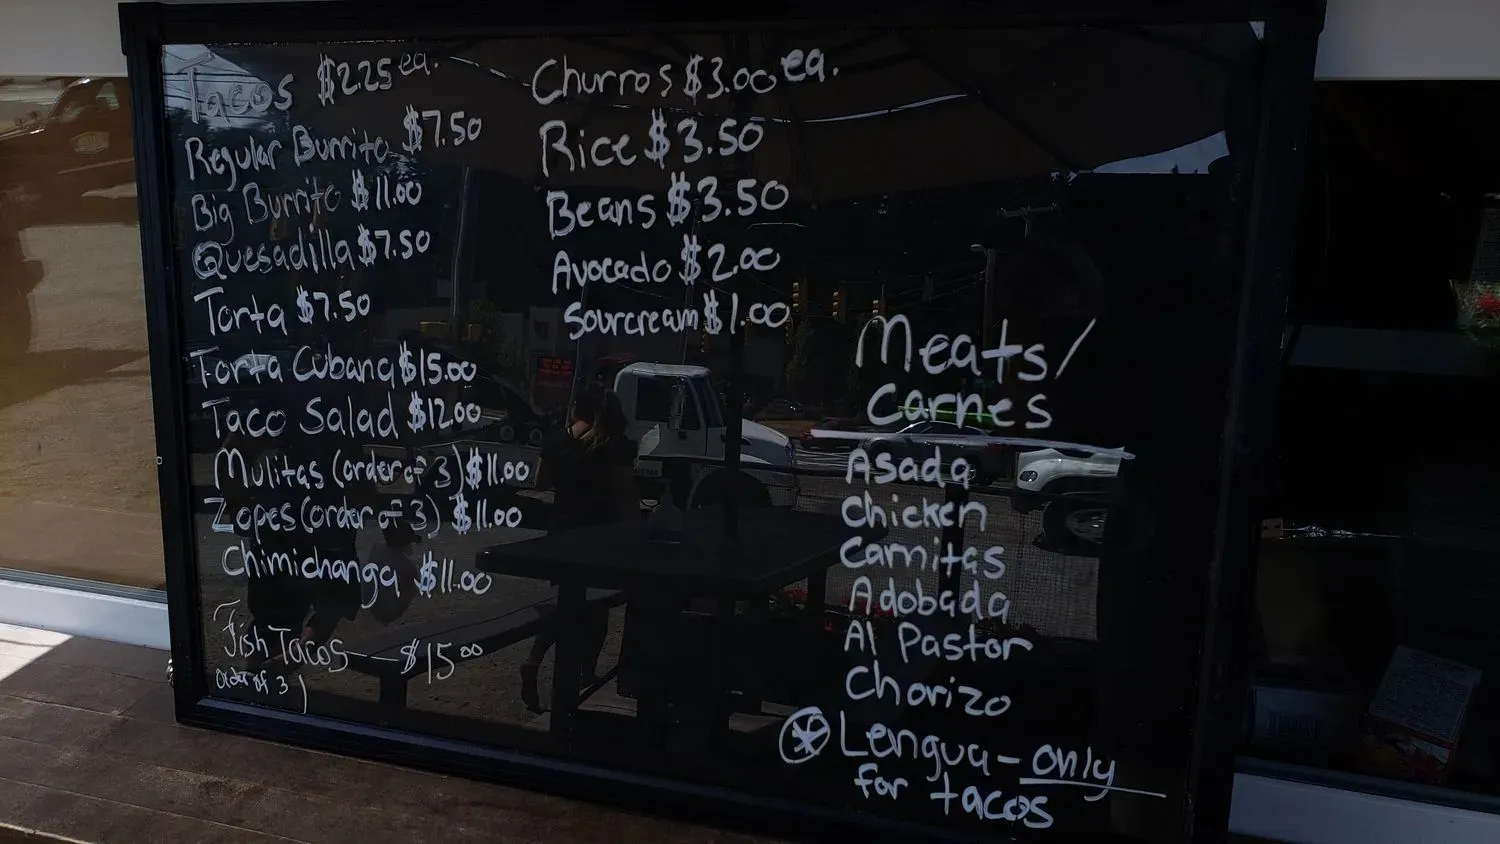 Tacos $2.25 ea.
Regular Burrito $7.50
Big Burrito $11.00
Quesadilla $7.50
Torta $7.50
Torta Cubana $15.00
Taco Salad $12.00
Mulitas (order of 3) $11.00
Zopes (order of 3) $11.00
Chimichanga $11.00
Fish Tacos — $15.00
Order of 3)
Churros $3.00 ea.
Rice $3.50
Beans $3.50
Avocado $2.00
Sourcream $1.00
Meats/
Carnes
Asada
Chicken
Carnitas
Adobada
Al Pastor
Chorizo
* Lengua - only
for tacos